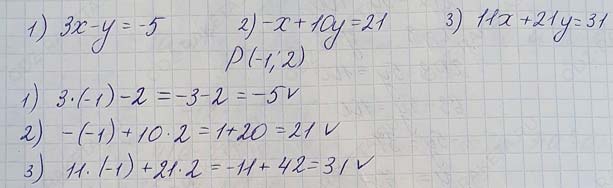 1) 3x-y=-5 2) -x+10y=21 3) 11x+21y=31
P(-1; 2)
1) 3·(-1)-2=-3-2=-5✓
2) -(-1)+10·2=1+20=21✓
3) 11·(-1)+21·2=-11+42=31✓